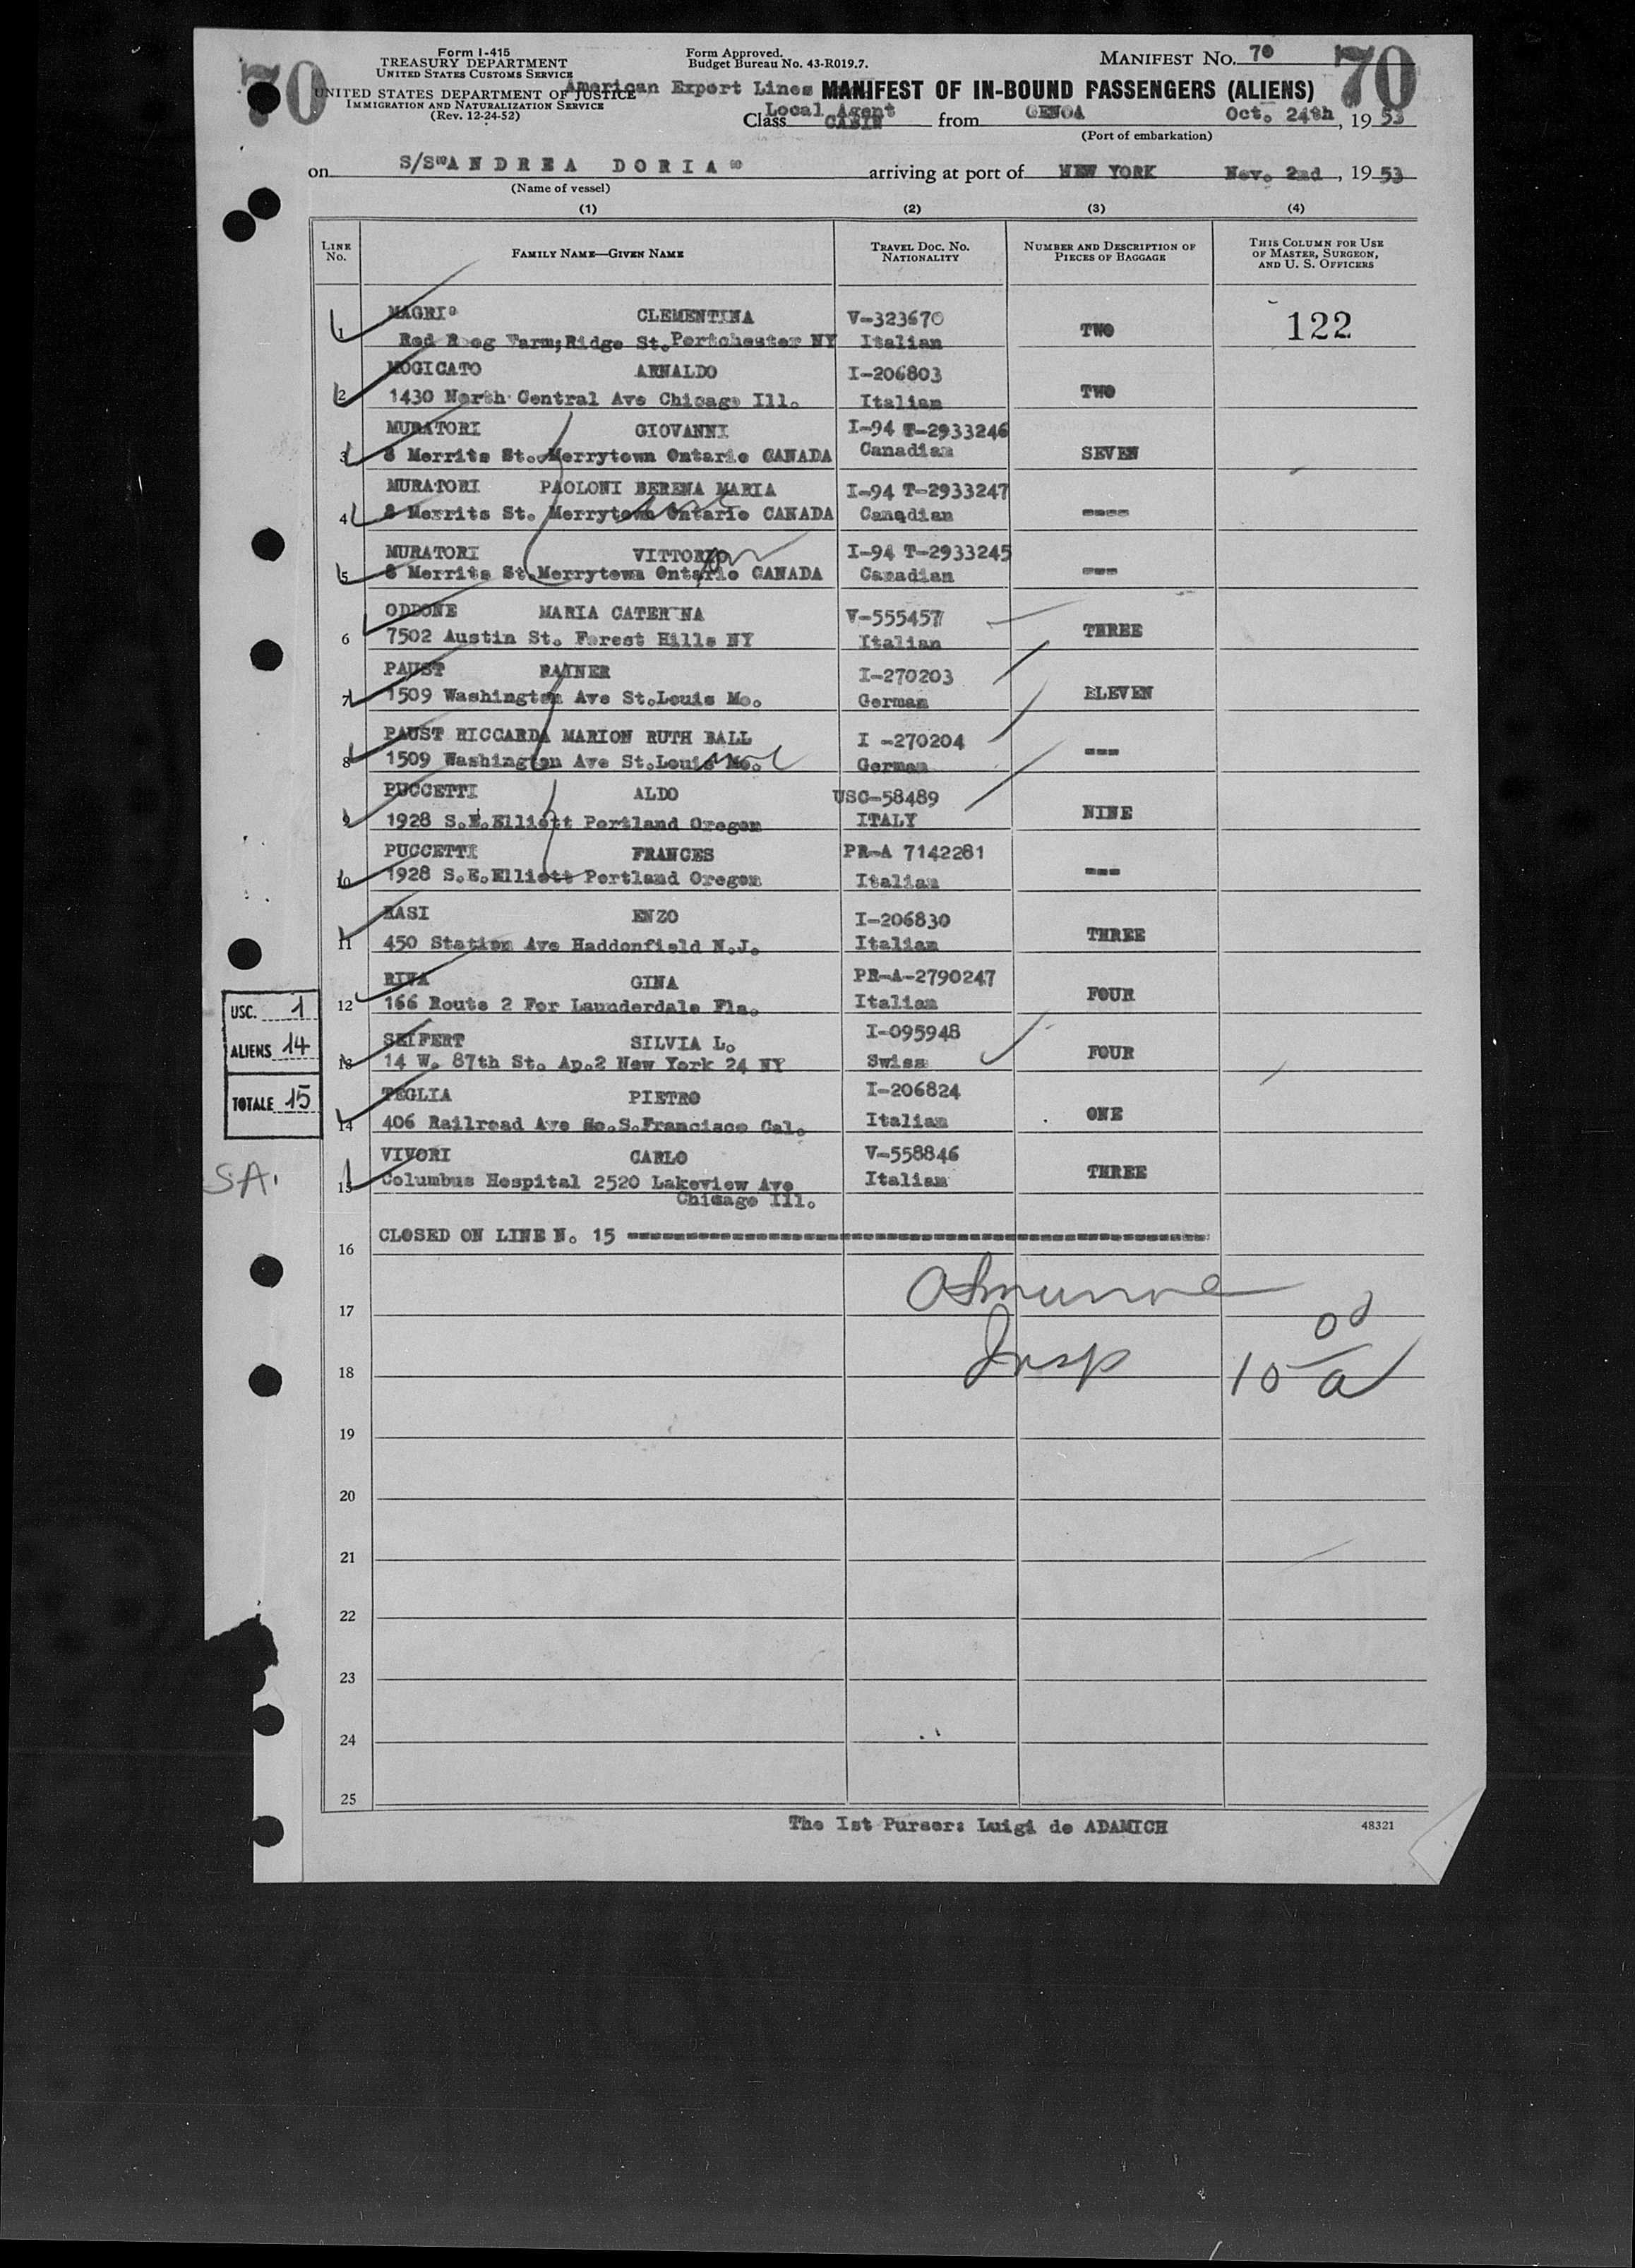 70
Form I-415
TREASURY DEPARTMENT
UNITED STATES CUSTOMS SERVICE
UNITED STATES DEPARTMENT OF JUSTICE
IMMIGRATION AND NATURALIZATION SERVICE
(Rev. 12-24-52)
Form Approved.
Budget Bureau No. 43-R019.7.
MANIFEST NO. 70
70
American Export Lines MANIFEST OF IN-BOUND PASSENGERS (ALIENS)
Local Agent
Class CABIN from GENOA Oct. 24th, 19 53
(Port of embarkation)
on S/S"ANDREA DORIA" arriving at port of NEW YORK Nov. 2nd, 19 53
(Name of vessel)
(1) (2) (3) (4)
LINE NO. FAMILY NAME—GIVEN NAME TRAVEL DOC. NO. NATIONALITY NUMBER AND DESCRIPTION OF PIECES OF BAGGAGE THIS COLUMN FOR USE OF MASTER, SURGEON, AND U. S. OFFICERS
MAGRI° CLEMENTINA V-323670
1 Farm; Ridge St. Portchester NY Italian TWO 122
MOGICATO ARNALDO I-206803
2 1430 North Central Ave Chicago Ill. Italian TWO
MURATORI GIOVANNI I-94 T-2933246
3 8 Merrits St. Merrytown Ontario CANADA Canadian SEVEN
MURATORI PAOLONI BERENA MARIA I-94 T-2933247
4 8 Merrits St. Merrytown Ontario CANADA Canadian ----
MURATORI VITTORIO I-94 T-2933245
5 8 Merrits St. Merrytown Ontario CANADA Canadian ---
ODDONE MARIA CATERINA V-555457
6 7502 Austin St. Forest Hills NY Italian THREE
PAUST RAINER I-270203
7 1509 Washington Ave St.Louis Mo. German ELEVEN
PAUST RICCARDA MARION RUTH BALL I -270204
8 1509 Washington Ave St.Louis Mo. German ---
PUCCETTI ALDO USC-58489
9 1928 S.E.Elliott Portland Oregon ITALY NINE
PUCCETTI FRANCES PR-A 7142281
10 1928 S.E.Elliott Portland Oregon Italian ---
RASI ENZO I-206830
11 450 Station Ave Haddonfield N.J. Italian THREE
RIVA GINA PR-A-2790247
12 166 Route 2 For Launderdale Fla. Italian FOUR
SEIFERT SILVIA L. I-095948
13 14 W. 87th St. Ap.2 New York 24 NY Swiss FOUR
TEGLIA PIETRO I-206824
14 406 Railroad Ave So.S.Francisco Cal. Italian ONE
VIVORI CARLO V-558846
15 Columbus Hospital 2520 Lakeview Ave Italian THREE
Chicago Ill.
USC. 1
ALIENS 14
TOTALE 15
S.A.
16 CLOSED ON LINE N. 15 ----------
17
Insp
10 00/a
18
19
20
21
22
23
24
25
The 1st Purser: Luigi de ADAMICH
48321